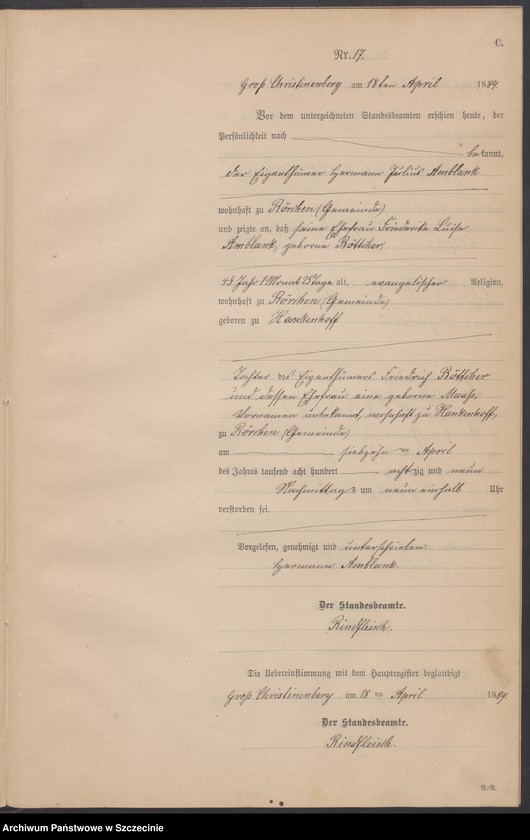 C.
Nr. 17.
Groß Christinenberg am 18ten April 1889.
Vor dem unterzeichneten Standesbeamten erschien heute, der
Persönlichkeit nach
bekannt,
der Eigenthümer Hermann Julius Amblank
wohnhaft zu Rörchen (Gemeinde)
und zeigte an, daß seine Ehefrau Friederike Luise
Amblank, geborne Böttcher,
45 Jahr 1 Monat 28 Tage alt, evangelischer Religion,
wohnhaft zu Rörchen (Gemeinde)
geboren zu Hankenhoff
Tochter des Eigenthümers Friedrich Böttcher
und dessen Ehefrau eine geborne Maass,
Vornamen unbekannt, wohnhaft zu Hankenhoff,
zu Rörchen (Gemeinde)
am siebzehn ten April
des Jahres tausend acht hundert achtzig und neun
Nachmittags um neun einhalb Uhr
verstorben sei.
Vorgelesen, genehmigt und unterschrieben
Hermann Amblank.
Der Standesbeamte.
Rindfleisch.
Die Uebereinstimmung mit dem Hauptregister beglaubigt
Groß Christinenberg am 18 ten April 1889.
Der Standesbeamte.
Rindfleisch.
Archiwum Państwowe w Szczecinie